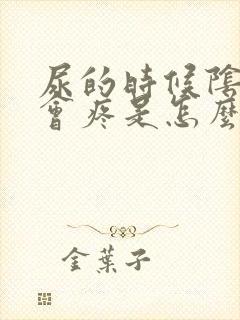 尿的時候陰
會疼是怎麼
金葉子